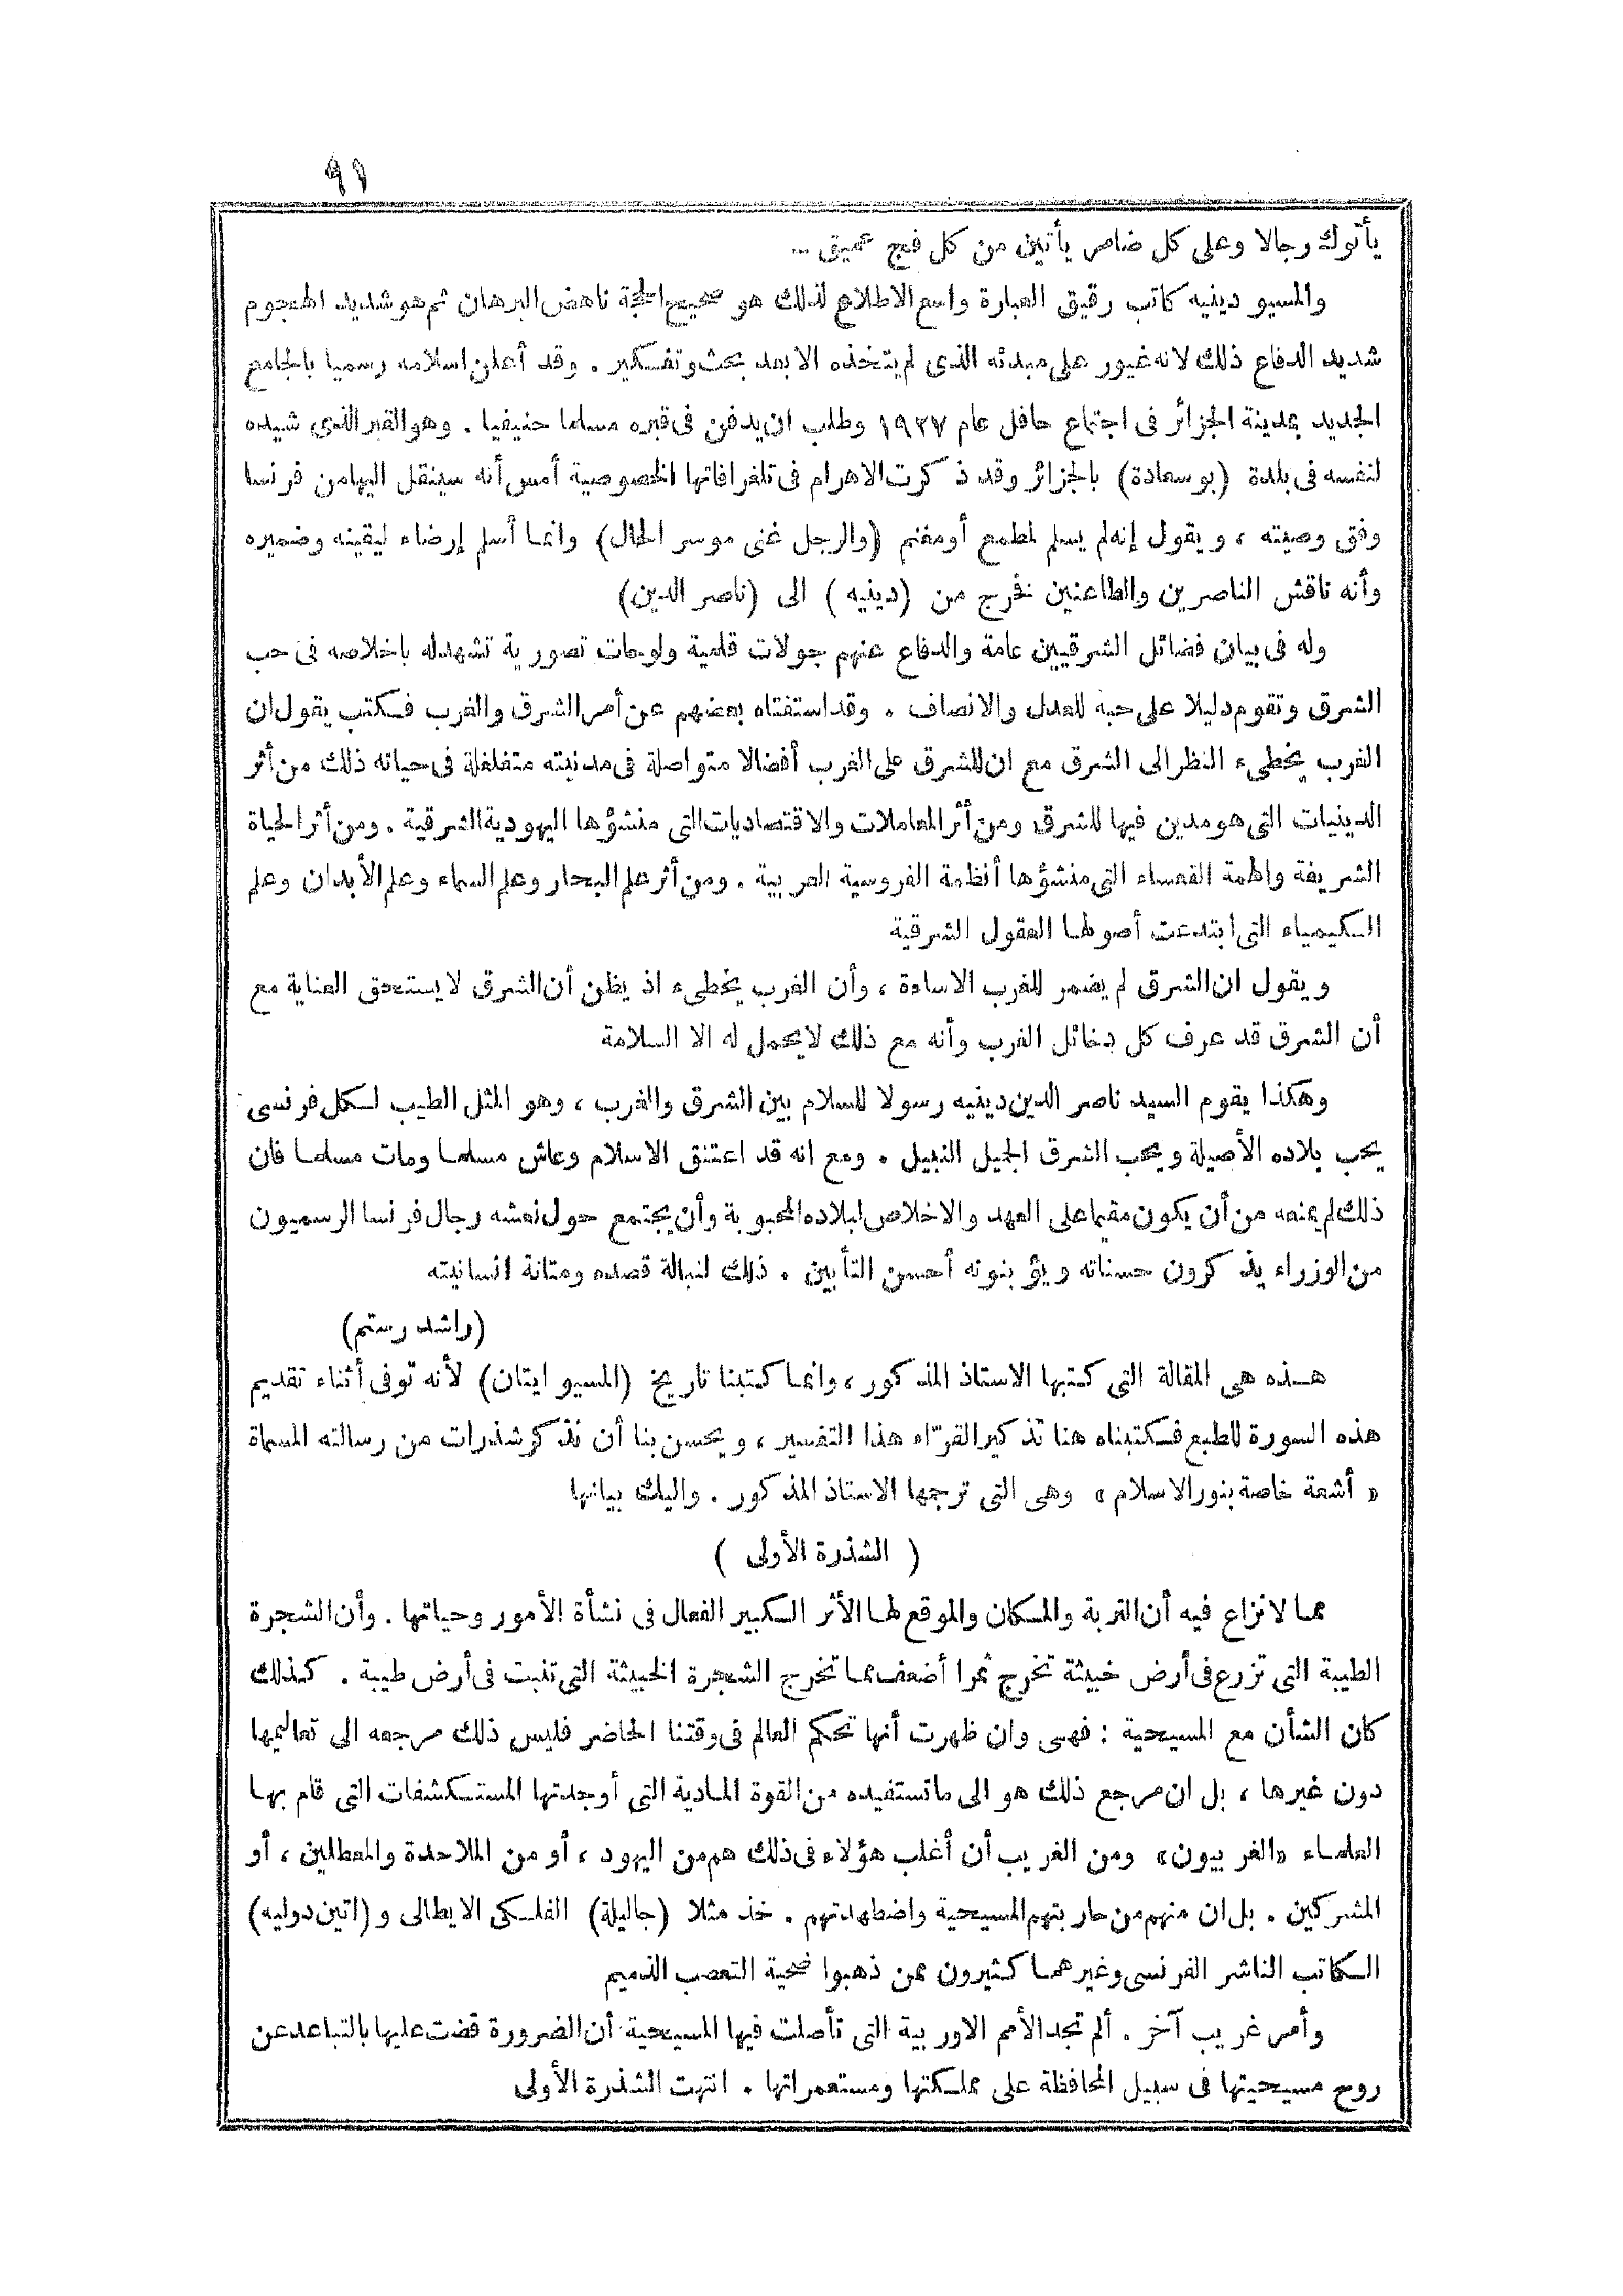 ٩٩
يأتوك رجالا وعلى كل ضامر يأتين من كل فج عميق ...
والمسيو دينيه كاتب رقيق العبارة واسع الاطلاع لذلك هو صحيح الحجة ناهض البرهان ثم هو شديد الهجوم
شديد الدفاع ذلك لانه غيور على مبدئه الذى لم يتخذه الا بعد بحث وتفكير . وقد أعلن اسلامه رسميا بالجامع
الجديد بمدينة الجزائر فى اجتماع حافل عام ١٩٢٧ وطلب ان يدفن فى قبره مسلما حنيفيا . وهو القبر الذى شيده
لنفسه فى بلدة (بوسعادة) بالجزائر وقد ذكرت الاهرام فى تلغرافاتها الخصوصية أمس أنه سينقل اليها من فرنسا
وفق وصيته ، ويقول إنه لم يسلم لمطمع أو مغنم (والرجل غنى موسر الحال) وانما أسلم إرضاء ليقينه وضميره
وأنه ناقش الناصرين والطاعنين فخرج من (دينيه) الى (ناصر الدين)
وله فى بيان فضائل الشرقيين عامة والدفاع عنهم جولات قلمية ولوحات تصورية تشهد له باخلاصه فى حب
الشرق وتقوم دليلا على حبه للعدل والانصاف . وقد استفتاه بعضهم عن أمر الشرق والغرب فكتب يقول ان
الغرب يخطىء النظر الى الشرق مع ان للشرق على الغرب أفضالا متواصلة فى مدنيته متغلغلة فى حياته ذلك من أثر
الدينيات التى هو مدين فيها للشرق ومن أثر المعاملات والاقتصاديات التى منشؤها اليهودية الشرقية . ومن أثر الحياة
الشريفة والهمة القعساء التى منشؤها أنظمة الفروسية العربية . ومن أثر علم البحار وعلم السماء وعلم الأبدان وعلم
الكيمياء التى ابتدعت أصولها العقول الشرقية
ويقول ان الشرق لم يضمر للغرب الاساءة ، وأن الغرب يخطىء اذ يظن أن الشرق لا يستحق العناية مع
أن الشرق قد عرف كل دخائل الغرب وأنه مع ذلك لا يحمل له الا السلامة
وهكذا يقوم السيد ناصر الدين دينيه رسولا للسلام بين الشرق والغرب ، وهو المثل الطيب لكل فرنسى
يحب بلاده الأصيلة ويحب الشرق الجميل النبيل . ومع انه قد اعتنق الاسلام وعاش مسلما ومات مسلما فان
ذلك لم يمنعه من أن يكون مقيما على العهد والاخلاص لبلاده المحبوبة وأن يجتمع حول نعشه رجال فرنسا الرسميون
من الوزراء يذكرون حسناته ويؤبنونه أحسن التأبين . ذلك لنبالة قصده ومتانة انسانيته
(راشد رستم)
هذه هى المقالة التى كتبها الاستاذ المذكور ، وانما كتبنا تاريخ (المسيو ايتان) لأنه توفى أثناء تقديم
هذه السورة للطبع فكتبناه هنا تذكيرا لقرّاء هذا التفسير ، ويحسن بنا أن نذكر شذرات من رسالته المسماة
« أشعة خاصة بنور الاسلام » وهى التى ترجمها الاستاذ المذكور . واليك بيانها
( الشذرة الأولى )
مما لا نزاع فيه أن التربة والمكان والموقع لها الأثر الكبير الفعال فى نشأة الأمور وحياتها . وأن الشجرة
الطيبة التى تزرع فى أرض خبيثة تخرج ثمرا أضعف مما تخرج الشجرة الخبيثة التى تنبت فى أرض طيبة . كذلك
كان الشأن مع المسيحية : فهى وان ظهرت أنها تحكم العالم فى وقتنا الحاضر فليس ذلك مرجعه الى تعاليمها
دون غيرها ، بل ان مرجع ذلك هو الى ما تستفيده من القوة المادية التى أوجدتها المستكشفات التى قام بها
العلماء «الغربيون» ومن الغريب أن أغلب هؤلاء فى ذلك هم من اليهود ، أو من الملاحدة والمعطلين ، أو
المشركين . بل ان منهم من حاربتهم المسيحية واضطهدتهم . خذ مثلا (جاليلة) الفلكى الايطالى و(اتين دوليه)
الكاتب الناشر الفرنسى وغيرهما كثيرون ممن ذهبوا ضحية التعصب الذميم
وأمر غريب آخر . ألم تجد الأمم الاوربية التى تأصلت فيها المسيحية أن الضرورة قضت عليها بالتباعد عن
روح مسيحيتها فى سبيل المحافظة على مملكتها ومستعمراتها . انتهت الشذرة الأولى